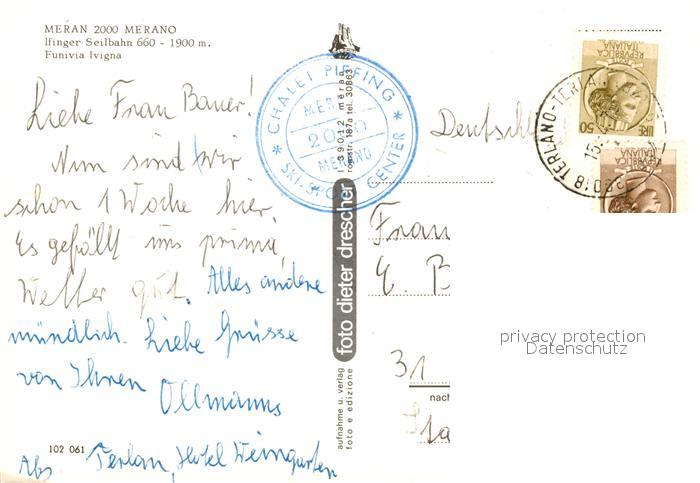 MERAN 2000 MERANO
Ifinger Seilbahn 660 - 1900 m.
Funivia Ivigna
Liebe Frau Bauer!
Nun sind wir
schon 1 Woche hier.
Es gefällt uns prima,
Wetter gut. Alles andere
mündlich. Liebe Grüsse
von Ihnen
Ollmanns
102 061
Abs. Terlan, Hotel Weingarten
* CHALET PIFFING *
MERAN
2000
MERANO
SKI-SPORT CENTER
39012 meran
rennstr. 187a tel. 30863
foto dieter drescher
aufnahme u. verlag
foto e edizione
Deutschl
Frau
E. B
31
nach
Sta
REPVBBLICA
ITALIANA
LIRE 50
REPVBBLICA
ITALIANA
39018 TERLANO-TERLA
privacy protection
Datenschutz